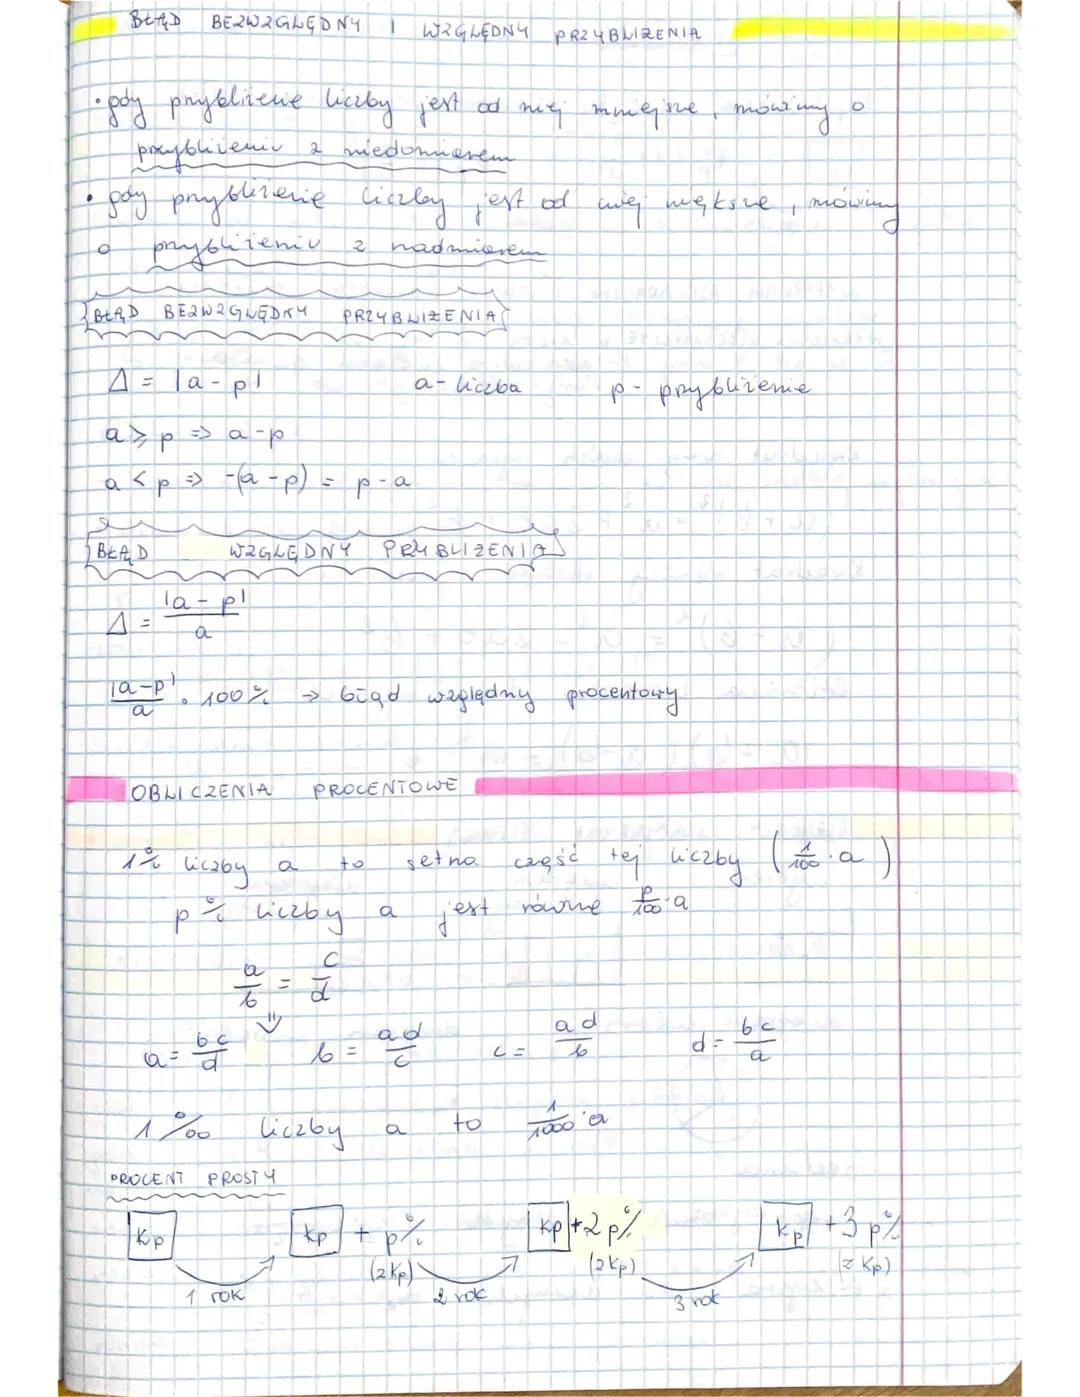 BŁĄD BEZWZGLĘDNY I WZGLĘDNY PRZYBLIŻENIA
• gdy przybliżenie liczby jest od niej mniejsze, mówimy o
przybliżeniu z niedomiarem
• gdy przybliżenie liczby jest od niej większe, mówimy
o przybliżeniu z nadmiarem
BŁĄD BEZWZGLĘDNY PRZYBLIŻENIA
Δ = |a - p| a - liczba p - przybliżenie
a ≥ p => a - p
a < p => -(a - p) = p - a
BŁĄD WZGLĘDNY PRZYBLIŻENIA
Δ = |a - p| / a
|a-p| / a · 100% → błąd względny procentowy
OBLICZENIA PROCENTOWE
1% liczby a to setna część tej liczby (1/100 · a)
p% liczby a jest równe p/100 · a
a/b = c/d
⇓
a = bc/d b = ad/c c = ad/b d = bc/a
1‰ liczby a to 1/1000 · a
PROCENT PROSTY
Kp Kp + p% Kp + 2p% Kp + 3p%
(z Kp) (z Kp) (z Kp)
1 rok 2 rok 3 rok